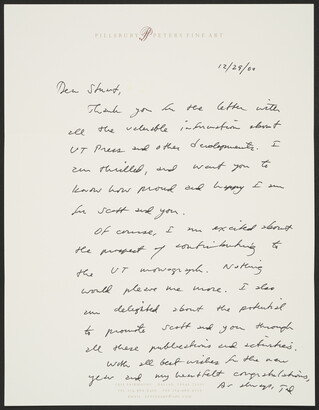 PILLSBURY PETERS FINE ART
12/28/00
Dear Stuart,
Thank you for the letter with
all the valuable information about
UT Press and other developments. I
am thrilled, and want you to
know how proud and happy I am
for Scott and you.
Of course, I am excited about
the prospect of contributing to
the UT monograph. Nothing
would please me more. I also
am delighted about the potential
to promote Scott and you through
all these publications and activities.
With all best wishes for the new
year and my heartfelt congratulations,
As always, Ted